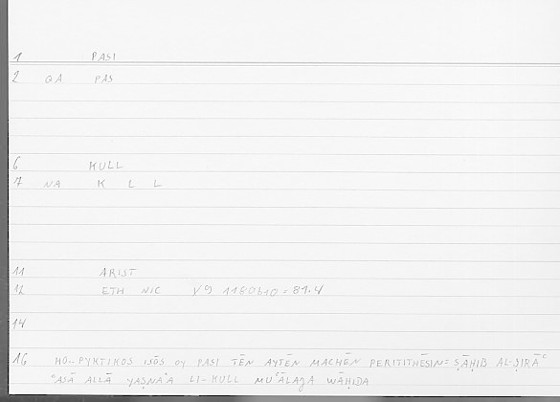 1 PASI
2 QA PAS
6 KULL
7 NA K L L
11 ARIST
12 ETH NIC V9 1180b10 = 81.4
14
16 HO.. PYKTIKOS ISŌS OY PASI TĒN AYTĒN MACHĒN PERITITHĒSIN = ṢĀḤIB AL-ṢIRĀʿ
ʿASĀ ALLĀ YAṢNAʿA LI-KULL MUʿĀLAǦA WĀḤIDA